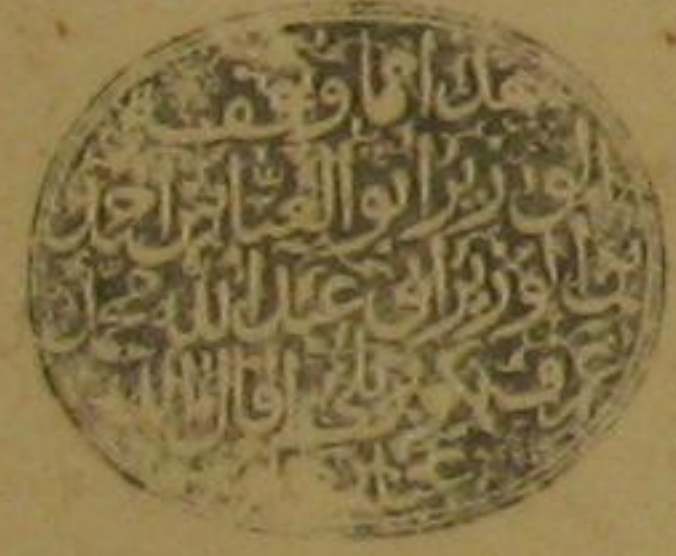 هذا ما وقف
الوزير أبو العباس أحمد
بن الوزير أبي عبد الله محمد
عرف بكوبريلي أقال الله
عثار